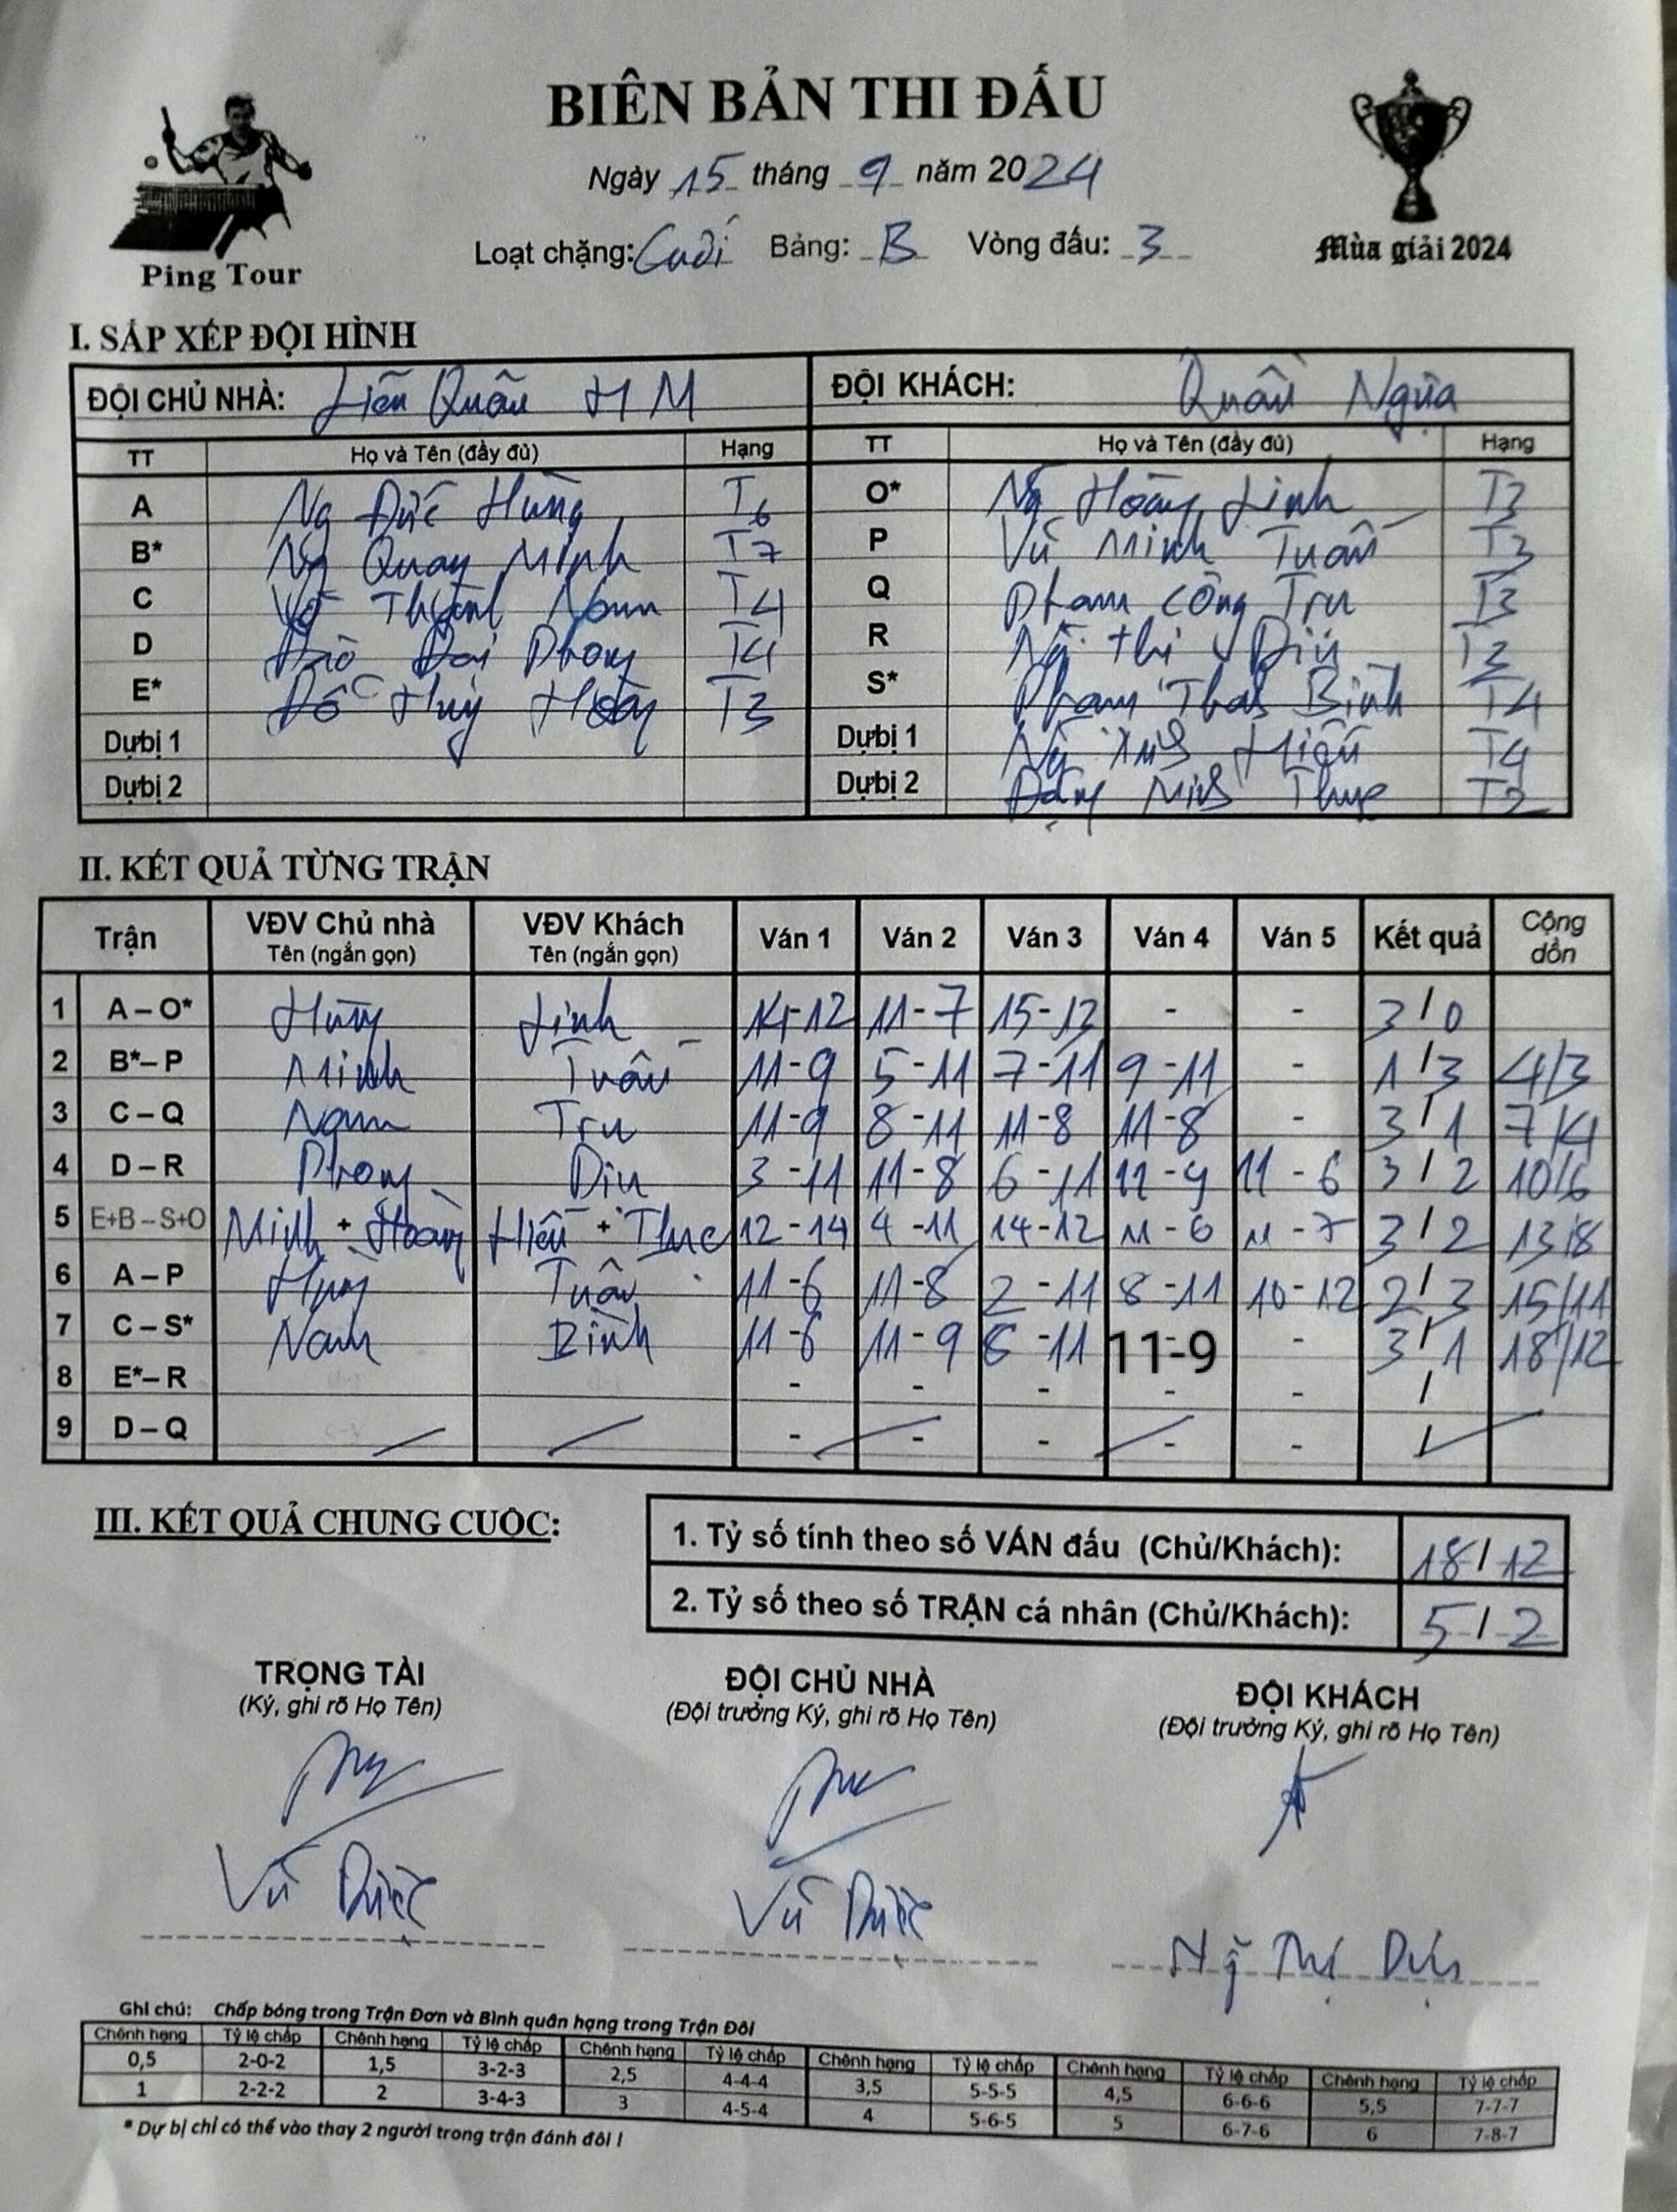 BIÊN BẢN THI ĐẤU
Ngày 15 tháng 9 năm 2024
Loạt chặng: Cuối Bảng: B Vòng đấu: 3
Ping Tour
Mùa giải 2024
I. SẮP XẾP ĐỘI HÌNH
ĐỘI CHỦ NHÀ: Liên Quân HM ĐỘI KHÁCH: Quần Ngựa
TT Họ và Tên (đầy đủ) Hạng TT Họ và Tên (đầy đủ) Hạng
A Ng Đức Hùng T6 O* Ng Hoàng Linh T3
B* Ng Quang Minh T7 P Vũ Minh Tuấn T3
C Võ Thành Nam T4 Q Phạm Công Trụ T3
D Đào Đại Phong T4 R Ng Thị Dịu T3
E* Đỗ Huy Hoàng T3 S* Phạm Thái Bình T4
Dự bị 1 Ng Hiếu T4
Dự bị 2 Đặng Minh Thực T2
II. KẾT QUẢ TỪNG TRẬN
Trận VĐV Chủ nhà VĐV Khách Ván 1 Ván 2 Ván 3 Ván 4 Ván 5 Kết quả Cộng dồn
Tên (ngắn gọn) Tên (ngắn gọn)
1 A – O* Hùng Linh 14-12 11-7 15-13 - - 3/0
2 B*– P Minh Tuấn 11-9 5-11 7-11 9-11 - 1/3 4/3
3 C – Q Nam Trụ 11-9 8-11 11-8 11-8 - 3/1 7/4
4 D – R Phong Dịu 3-11 11-8 6-11 11-9 11-6 3/2 10/6
5 E+B – S+O Minh + Hoàng Hiếu + Thực 12-14 4-11 14-12 11-6 11-7 3/2 13/8
6 A – P Hùng Tuấn 11-6 11-8 2-11 8-11 10-12 2/3 15/11
7 C – S* Nam Bình 11-6 11-9 6-11 11-9 - 3/1 18/12
8 E*– R - - - - - /
9 D – Q - - - - - /
III. KẾT QUẢ CHUNG CUỘC:
1. Tỷ số tính theo số VÁN đấu (Chủ/Khách): 18/12
2. Tỷ số theo số TRẬN cá nhân (Chủ/Khách): 5/2
TRỌNG TÀI ĐỘI CHỦ NHÀ ĐỘI KHÁCH
(Ký, ghi rõ Họ Tên) (Đội trưởng Ký, ghi rõ Họ Tên) (Đội trưởng Ký, ghi rõ Họ Tên)
Vũ Vũ Ng Thị Dịu
Ghi chú: Chấp bóng trong Trận Đơn và Bình quân hạng trong Trận Đôi
Chênh hạng Tỷ lệ chấp Chênh hạng Tỷ lệ chấp Chênh hạng Tỷ lệ chấp Chênh hạng Tỷ lệ chấp Chênh hạng Tỷ lệ chấp Chênh hạng Tỷ lệ chấp
0,5 2-0-2 1,5 3-2-3 2,5 4-4-4 3,5 5-5-5 4,5 6-6-6 5,5 7-7-7
1 2-2-2 2 3-4-3 3 4-5-4 4 5-6-5 5 6-7-6 6 7-8-7
* Dự bị chỉ có thể vào thay 2 người trong trận đánh đôi !